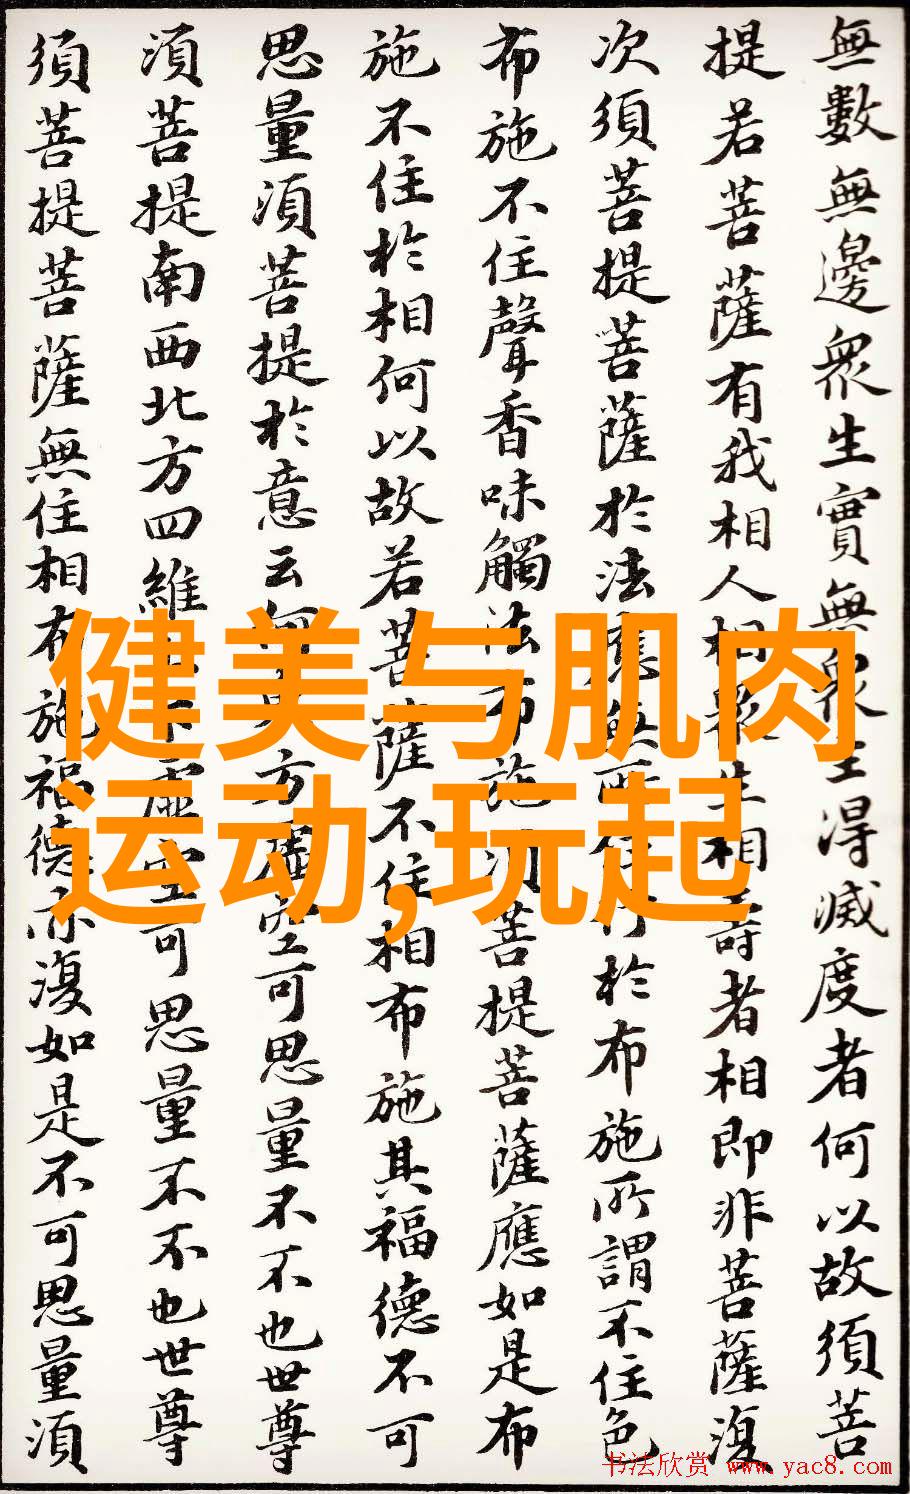 無數無邊眾生實無眾生得滅度者何以故須菩
提若菩薩有我相人相眾生相壽者相即非菩薩復
次須菩提菩薩於法應無所住行於布施所謂不住色
布施不住聲香味觸法布施須菩提菩薩應如是布
施不住於相何以故若菩薩不住相布施其福德不可
思量須菩提於意云何東方虛空可思量不不也世尊
須菩提南西北方四維上下虛空可思量不不也世尊
須菩提菩薩無住相布施福德亦復如是不可思量須
健美与肌肉
运动,玩起
书法欣赏 www.yac8.com